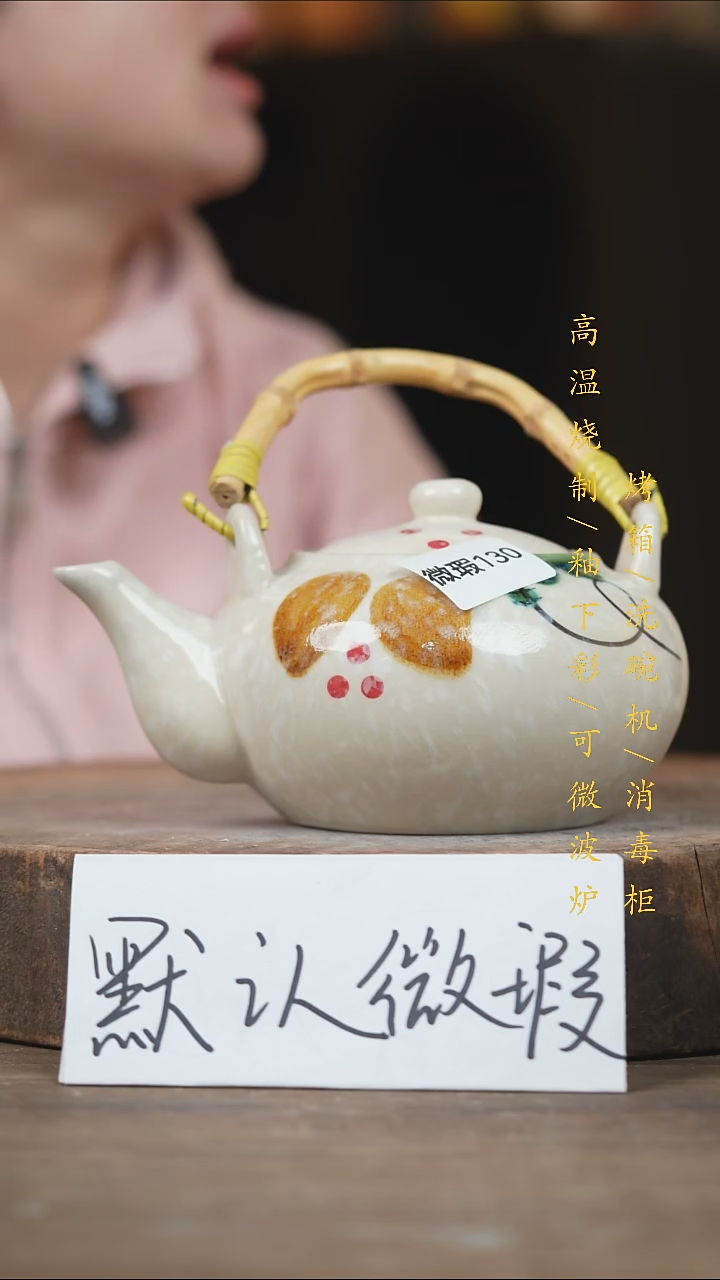 高温烧制/釉下彩/可微波炉
烤箱/洗碗机/消毒柜
微瑕130
默认微瑕